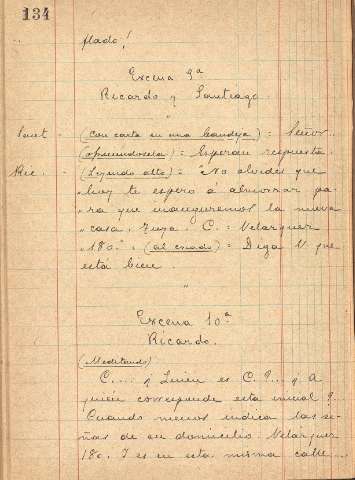 134
flado!
Escena 9ª
Ricardo y Santiago.
"
Sant - (Con carta en una bandeja) = Señor.
(ofreciendosela) = Esperan respuesta.
Ric. - (Leyendo alto) = "No olvides que
"hoy te espero á almorzar pa-
"ra que inauguremos la nueva
"casa. Tuya. C. = Velazquez
"180." (al criado) = Diga V. que
está bien.
"
Escena 10ª
Ricardo.
(Meditando)
C.... ¿Quien es C.?... ¿A
quien corresponde esta inicial?...
Cuando menos indica las se-
ñas de su domicilio. Velazquez
180. Y es en esta misma calle...